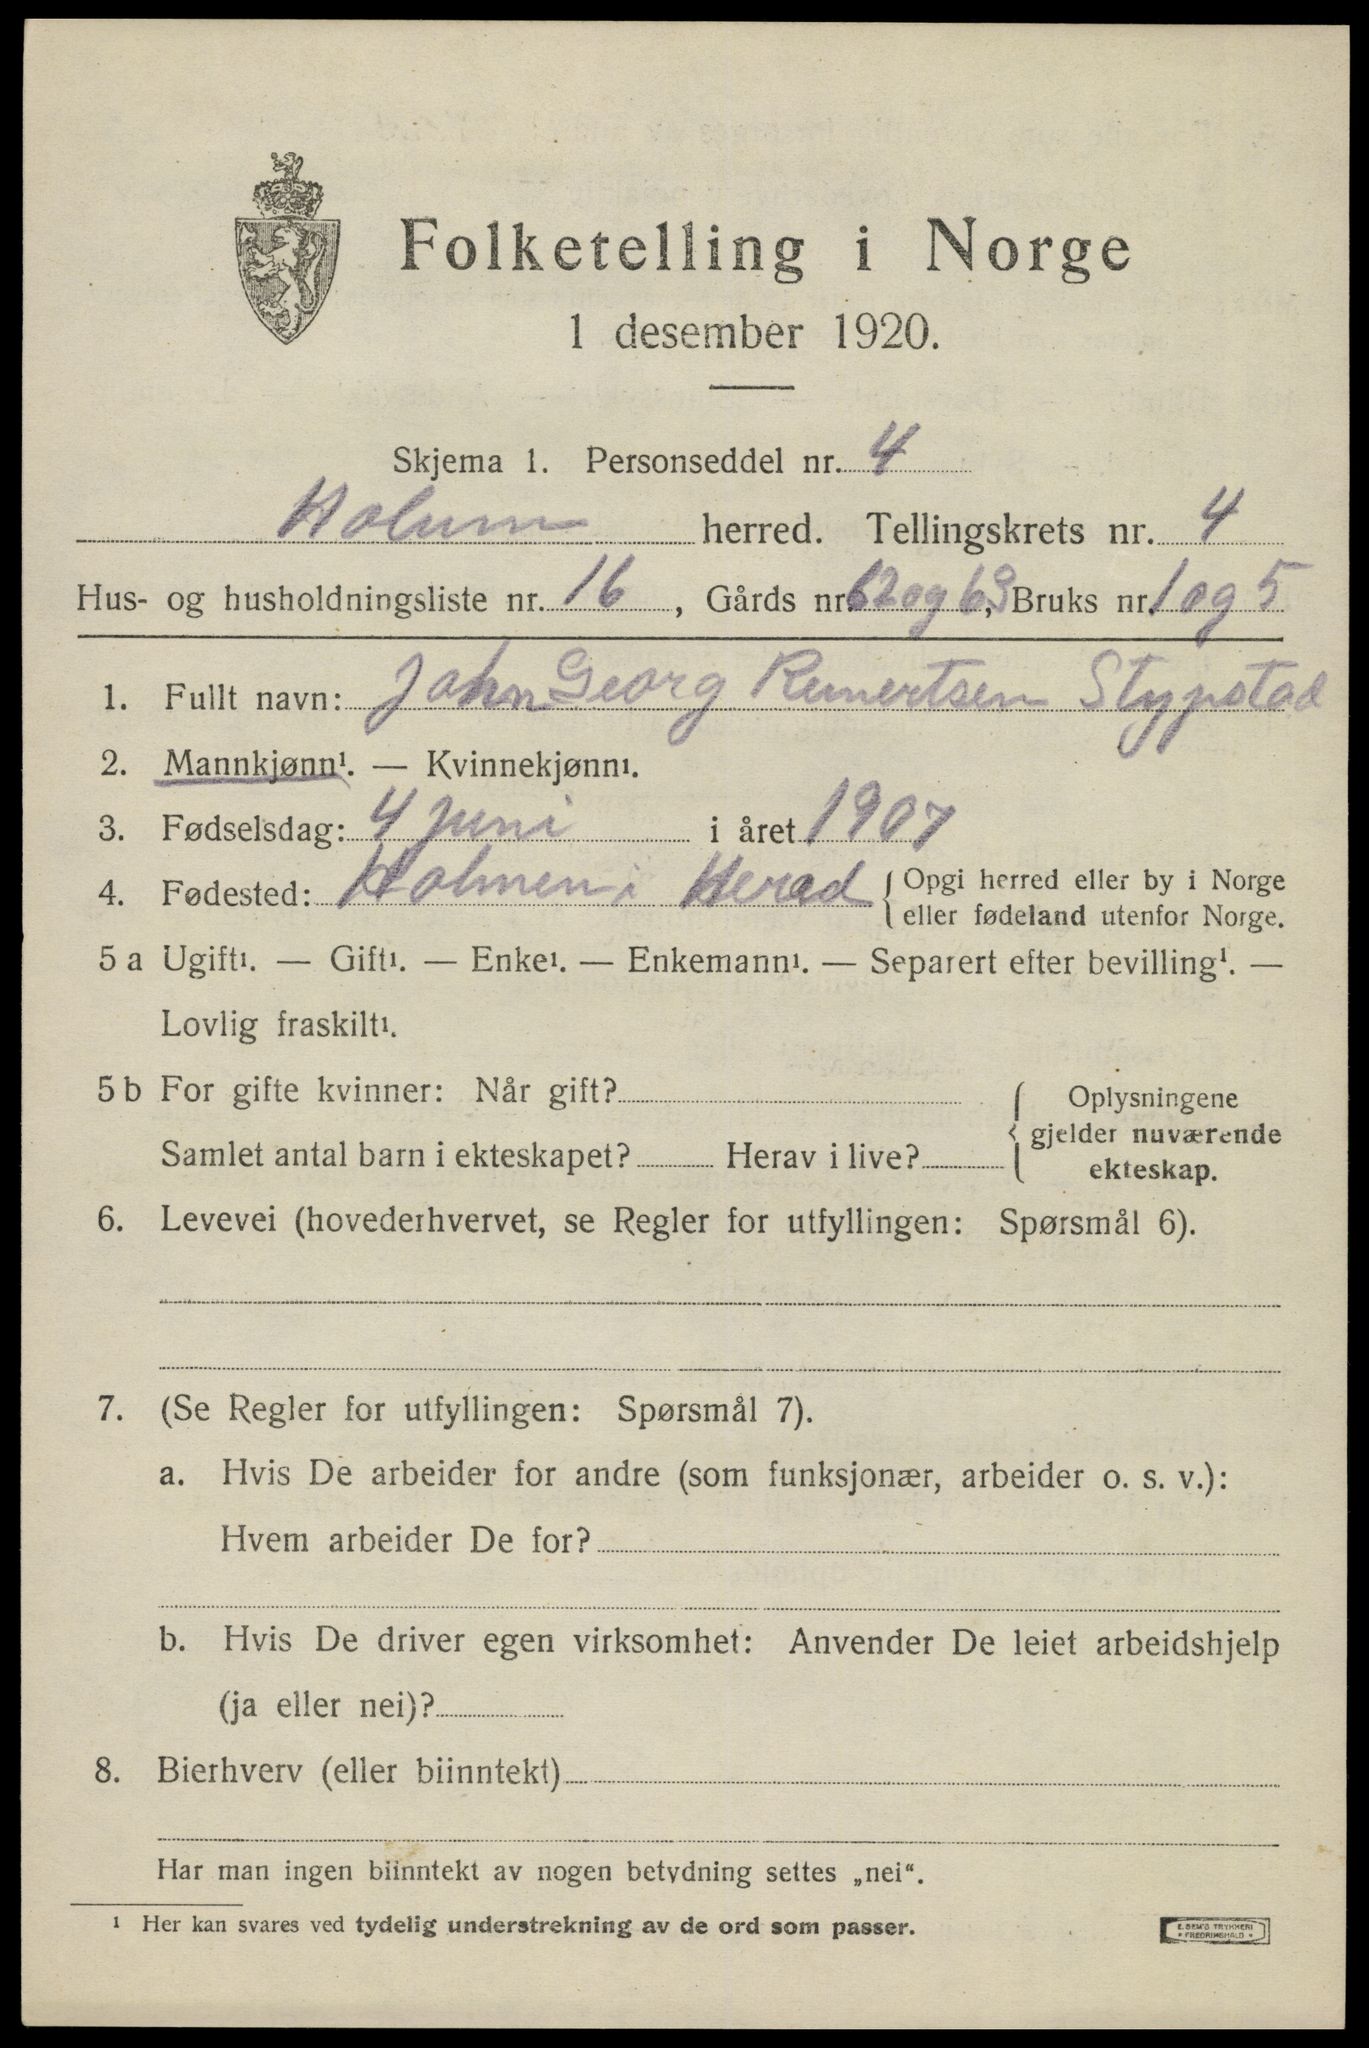 Folketelling i Norge
1 desember 1920.
Skjema 1. Personseddel nr. 4
Holum herred. Tellingskrets nr. 4
Hus- og husholdningsliste nr. 16, Gårds nr. 62 og 63, Bruks nr. 1 og 5
1. Fullt navn: John Georg Reinertsen Stypstad
2. Mannkjønn¹. — Kvinnekjønn¹.
3. Fødselsdag: 4 juni i året 1907
4. Fødested: Holmen i Herad { Opgi herred eller by i Norge
eller fødeland utenfor Norge.
5 a Ugift¹. — Gift¹. — Enke¹. — Enkemann¹. — Separert efter bevilling¹. —
Lovlig fraskilt¹.
5 b For gifte kvinner: Når gift? { Oplysningene
gjelder nuværende
Samlet antal barn i ekteskapet? Herav i live?
ekteskap.
6. Levevei (hovederhvervet, se Regler for utfyllingen: Spørsmål 6).
7. (Se Regler for utfyllingen: Spørsmål 7).
a. Hvis De arbeider for andre (som funksjonær, arbeider o. s. v.):
Hvem arbeider De for?
b. Hvis De driver egen virksomhet: Anvender De leiet arbeidshjelp
(ja eller nei)?
8. Bierhverv (eller biinntekt)
Har man ingen biinntekt av nogen betydning settes „nei“.
¹ Her kan svares ved tydelig understrekning av de ord som passer.
E. SEM'S TRYKKERI
• FREDRIKSHALD •